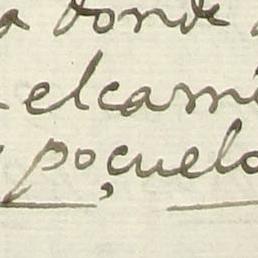 a donde
elcami
poçuelo